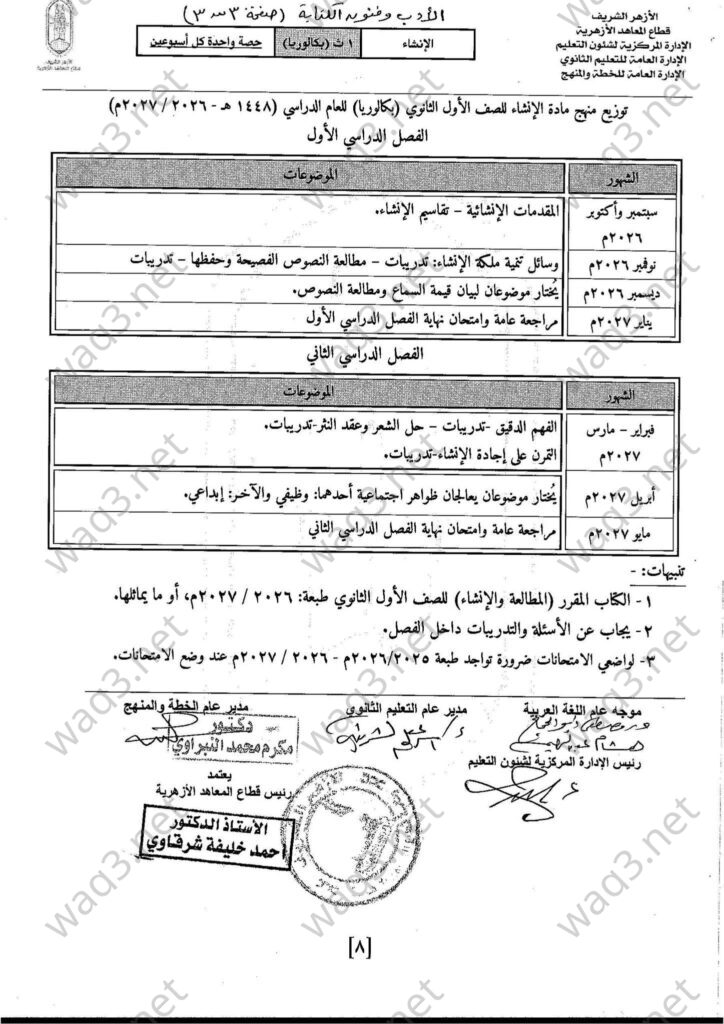 الأدب وفنون الكتابة (صفحة ٣ من ٣)
الأزهر الشريف
قطاع المعاهد الأزهرية
الإدارة المركزية لشئون التعليم
الإدارة العامة للتعليم الثانوي
الإدارة العامة للخطة والمنهج
الإنشاء
١ ث (بكالوريا)
حصة واحدة كل أسبوعين
الأزهر الشريف
قطاع المعاهد الأزهرية
توزيع منهج مادة الإنشاء للصف الأول الثانوي (بكالوريا) للعام الدراسي (١٤٤٨ هـ - ٢٠٢٦ / ٢٠٢٧م)
الفصل الدراسي الأول
الشهور
الموضوعات
سبتمبر وأكتوبر ٢٠٢٦م
المقدمات الإنشائية – تقاسيم الإنشاء.
نوفمبر ٢٠٢٦م
وسائل تنمية ملكة الإنشاء: تدريبات – مطالعة النصوص الفصيحة وحفظها – تدريبات
ديسمبر ٢٠٢٦م
يُختار موضوعان لبيان قيمة السماع ومطالعة النصوص.
يناير ٢٠٢٧م
مراجعة عامة وامتحان نهاية الفصل الدراسي الأول
الفصل الدراسي الثاني
الشهور
الموضوعات
فبراير – مارس ٢٠٢٧م
الفهم الدقيق -تدريبات – حل الشعر وعقد النثر-تدريبات.
التمرن على إجادة الإنشاء-تدريبات.
أبريل ٢٠٢٧م
يُختار موضوعان يعالجان ظواهر اجتماعية أحدهما: وظيفي والآخر: إبداعي.
مايو ٢٠٢٧م
مراجعة عامة وامتحان نهاية الفصل الدراسي الثاني
تنبيهات: -
١- الكتاب المقرر (المطالعة والإنشاء) للصف الأول الثانوي طبعة: ٢٠٢٦ / ٢٠٢٧م، أو ما يماثلها.
٢- يجاب عن الأسئلة والتدريبات داخل الفصل.
٣- لواضعي الامتحانات ضرورة تواجد طبعة ٢٠٢٦/٢٠٢٥م - ٢٠٢٦ / ٢٠٢٧م عند وضع الامتحانات.
موجه عام اللغة العربية
مدير عام التعليم الثانوي
مدير عام الخطة والمنهج
دكتور
مكرم محمد النبراوي
رئيس الإدارة المركزية لشئون التعليم
يعتمد
رئيس قطاع المعاهد الأزهرية
الأستاذ الدكتور
أحمد خليفة شرقاوي
[٨]
waq3.net